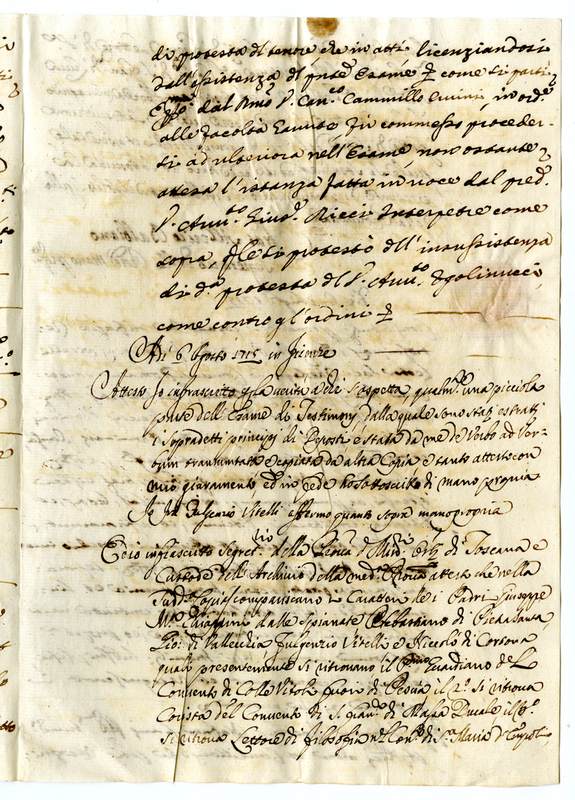 di protesta del tenore, che in atti licenziandosi
dall'assistenza del pred.to Esame come si parti
dal Rmo P. Can.co Cammillo in ord.e
alle facoltà fu commesso proceder
si ad ulteriora nell'Esame, non ostante
attesa l'istanza fatta in voce dal pred.
S. Avv.to Gius.e Ricci Interpetre come
sopra, che si protestò dell'insussistenza
di d.a protesta del S. Avv.to Egolinucci,
come contro gl'ordini
Adi 6 Agosto 1715 in Firenze
Attesto Io infrascritto p la verità a chi s'aspetta, qualm.e una piccola
parte dell'Esame di Testimonj, dalla quale sono stati estratti
i sopradetti principij di Deposti è stata da me de Verbo ad Ver-
bum transuntata e copiata da altra Copia e tanto attesto con
mio giuramento ed in fede ho sottoscritto di mano propria
Io Fulgenzio Vitelli affermo quanto sopra manopropria
Ed io infrascritto Segret.rio della Prov.a di Toscana e
Custode dell'Archivio della med. attesto che nella
sud.a copia compariscano i Caratteri de i Padri Giuseppe
M.a dalle Spianate Sebastiano di Pietra Santa
Gio: di Vallecchia Fulgenzio Vitelli e Niccolò di Cortona
quali presentemente si ritrovano il Primo Guardiano del
Convento di Colle Viti fuori di Pescia il 2.o si ritrova
Corista del Convento di di Massa Ducale il
si ritrova Lettore di filosofia nel Con.to di S. Maria